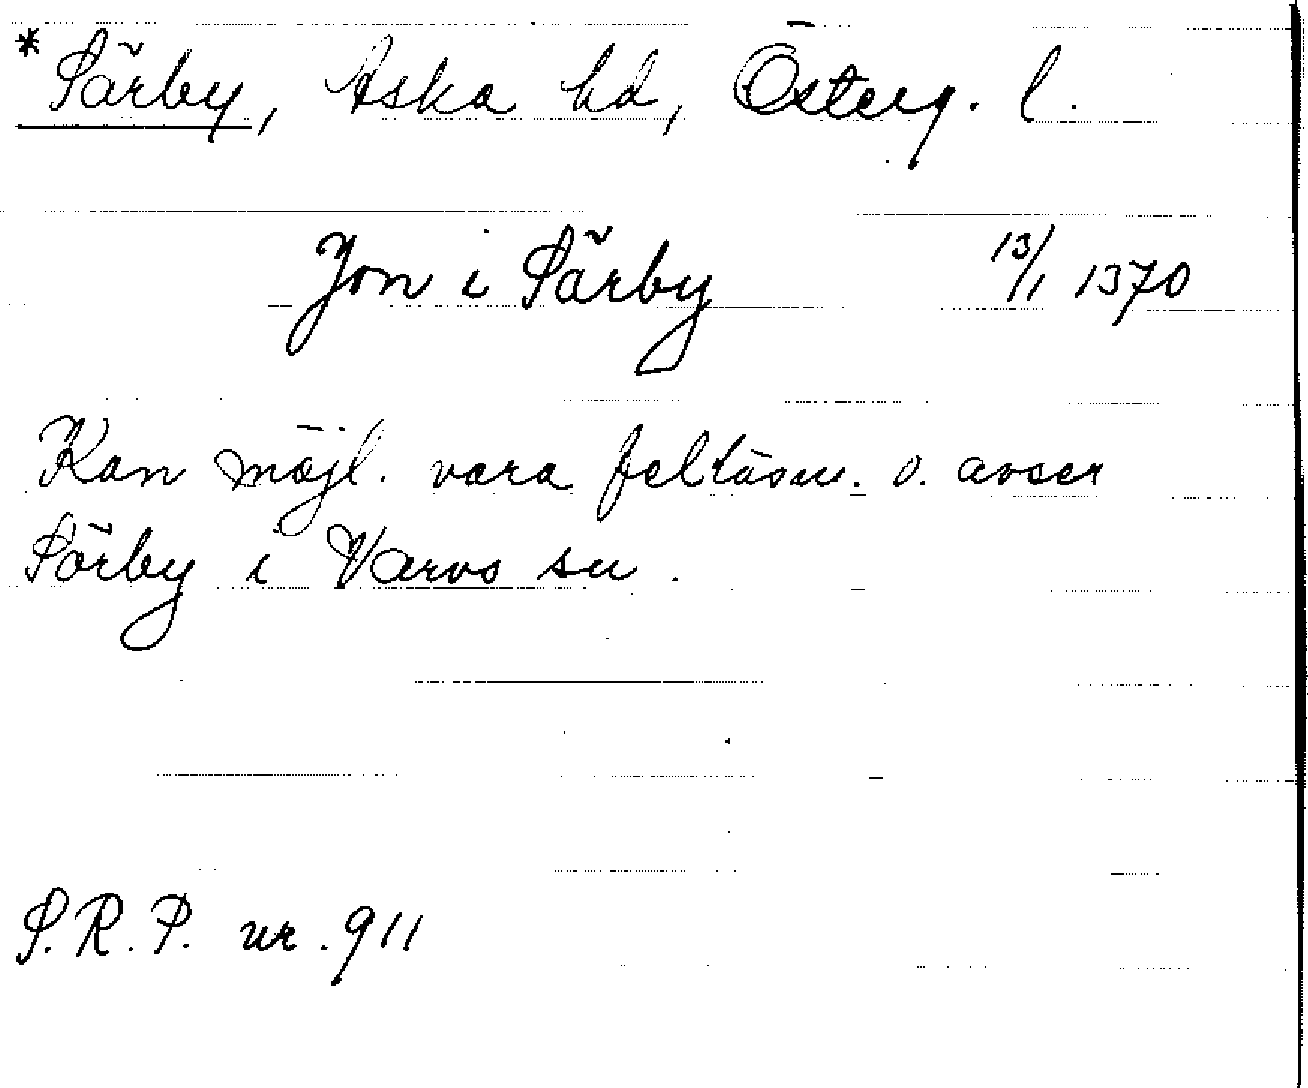 *Särby, Aska hd, Österg. l.
Jon i Särby 13/1 1370
Kan möjl. vara felläsn. o. avser
Sörby i Varvs sn.
S.R.P. nr. 911